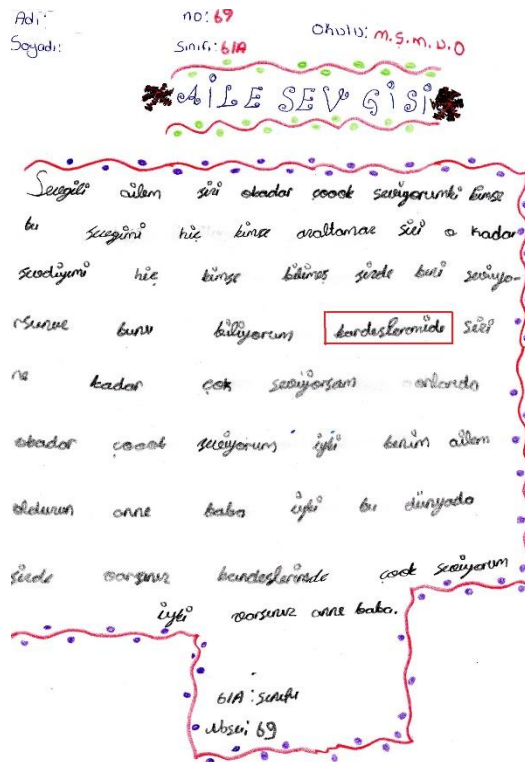 Adı: no: 69 Okulu: M.Ş.M.U.O
Soyadı: Sınıfı: 6/A
AİLE SEVGİSİ
Sevgili ailem sizi okadar çoook seviyorumki kimse
bu sevgimi hiç kimse azaltamaz sizi o kadar
sevdiyimi hiç kimse bilimeş sizde beni seviyo-
rsunuz bunu biliyorum kardeşlerimide sizi
ne kadar çok seviyorsam onlarıda
okadar çoook seviyorum iyki benim ailem
oldunuz anne baba iyki bu dünyada
sizde varsınız kardeşlerimde çook seviyorum
iyki varsınız anne baba.
6/A: sınıfı
Nosu: 69